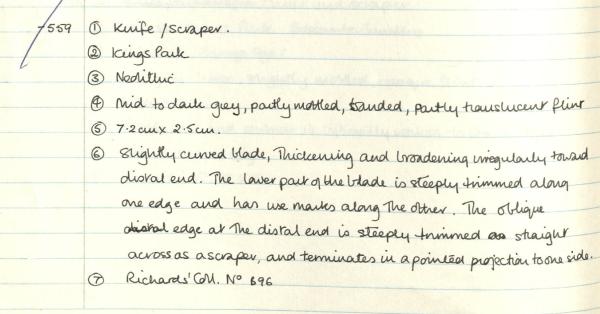 -559 ① Knife / Scraper.
② Kings Park
③ Neolithic
④ Mid to dark grey, partly mottled, banded, partly translucent flint
⑤ 7.2cm x 2.5cm.
⑥ Slightly curved blade, Thickening and broadening irregularly toward
distal end. The lower part of the blade is steeply trimmed along
one edge and has use marks along the other. The oblique
distal edge at the distal end is steeply trimmed straight
across as a scraper, and terminates in a pointed projection to one side.
⑦ Richards' Coll. No 696